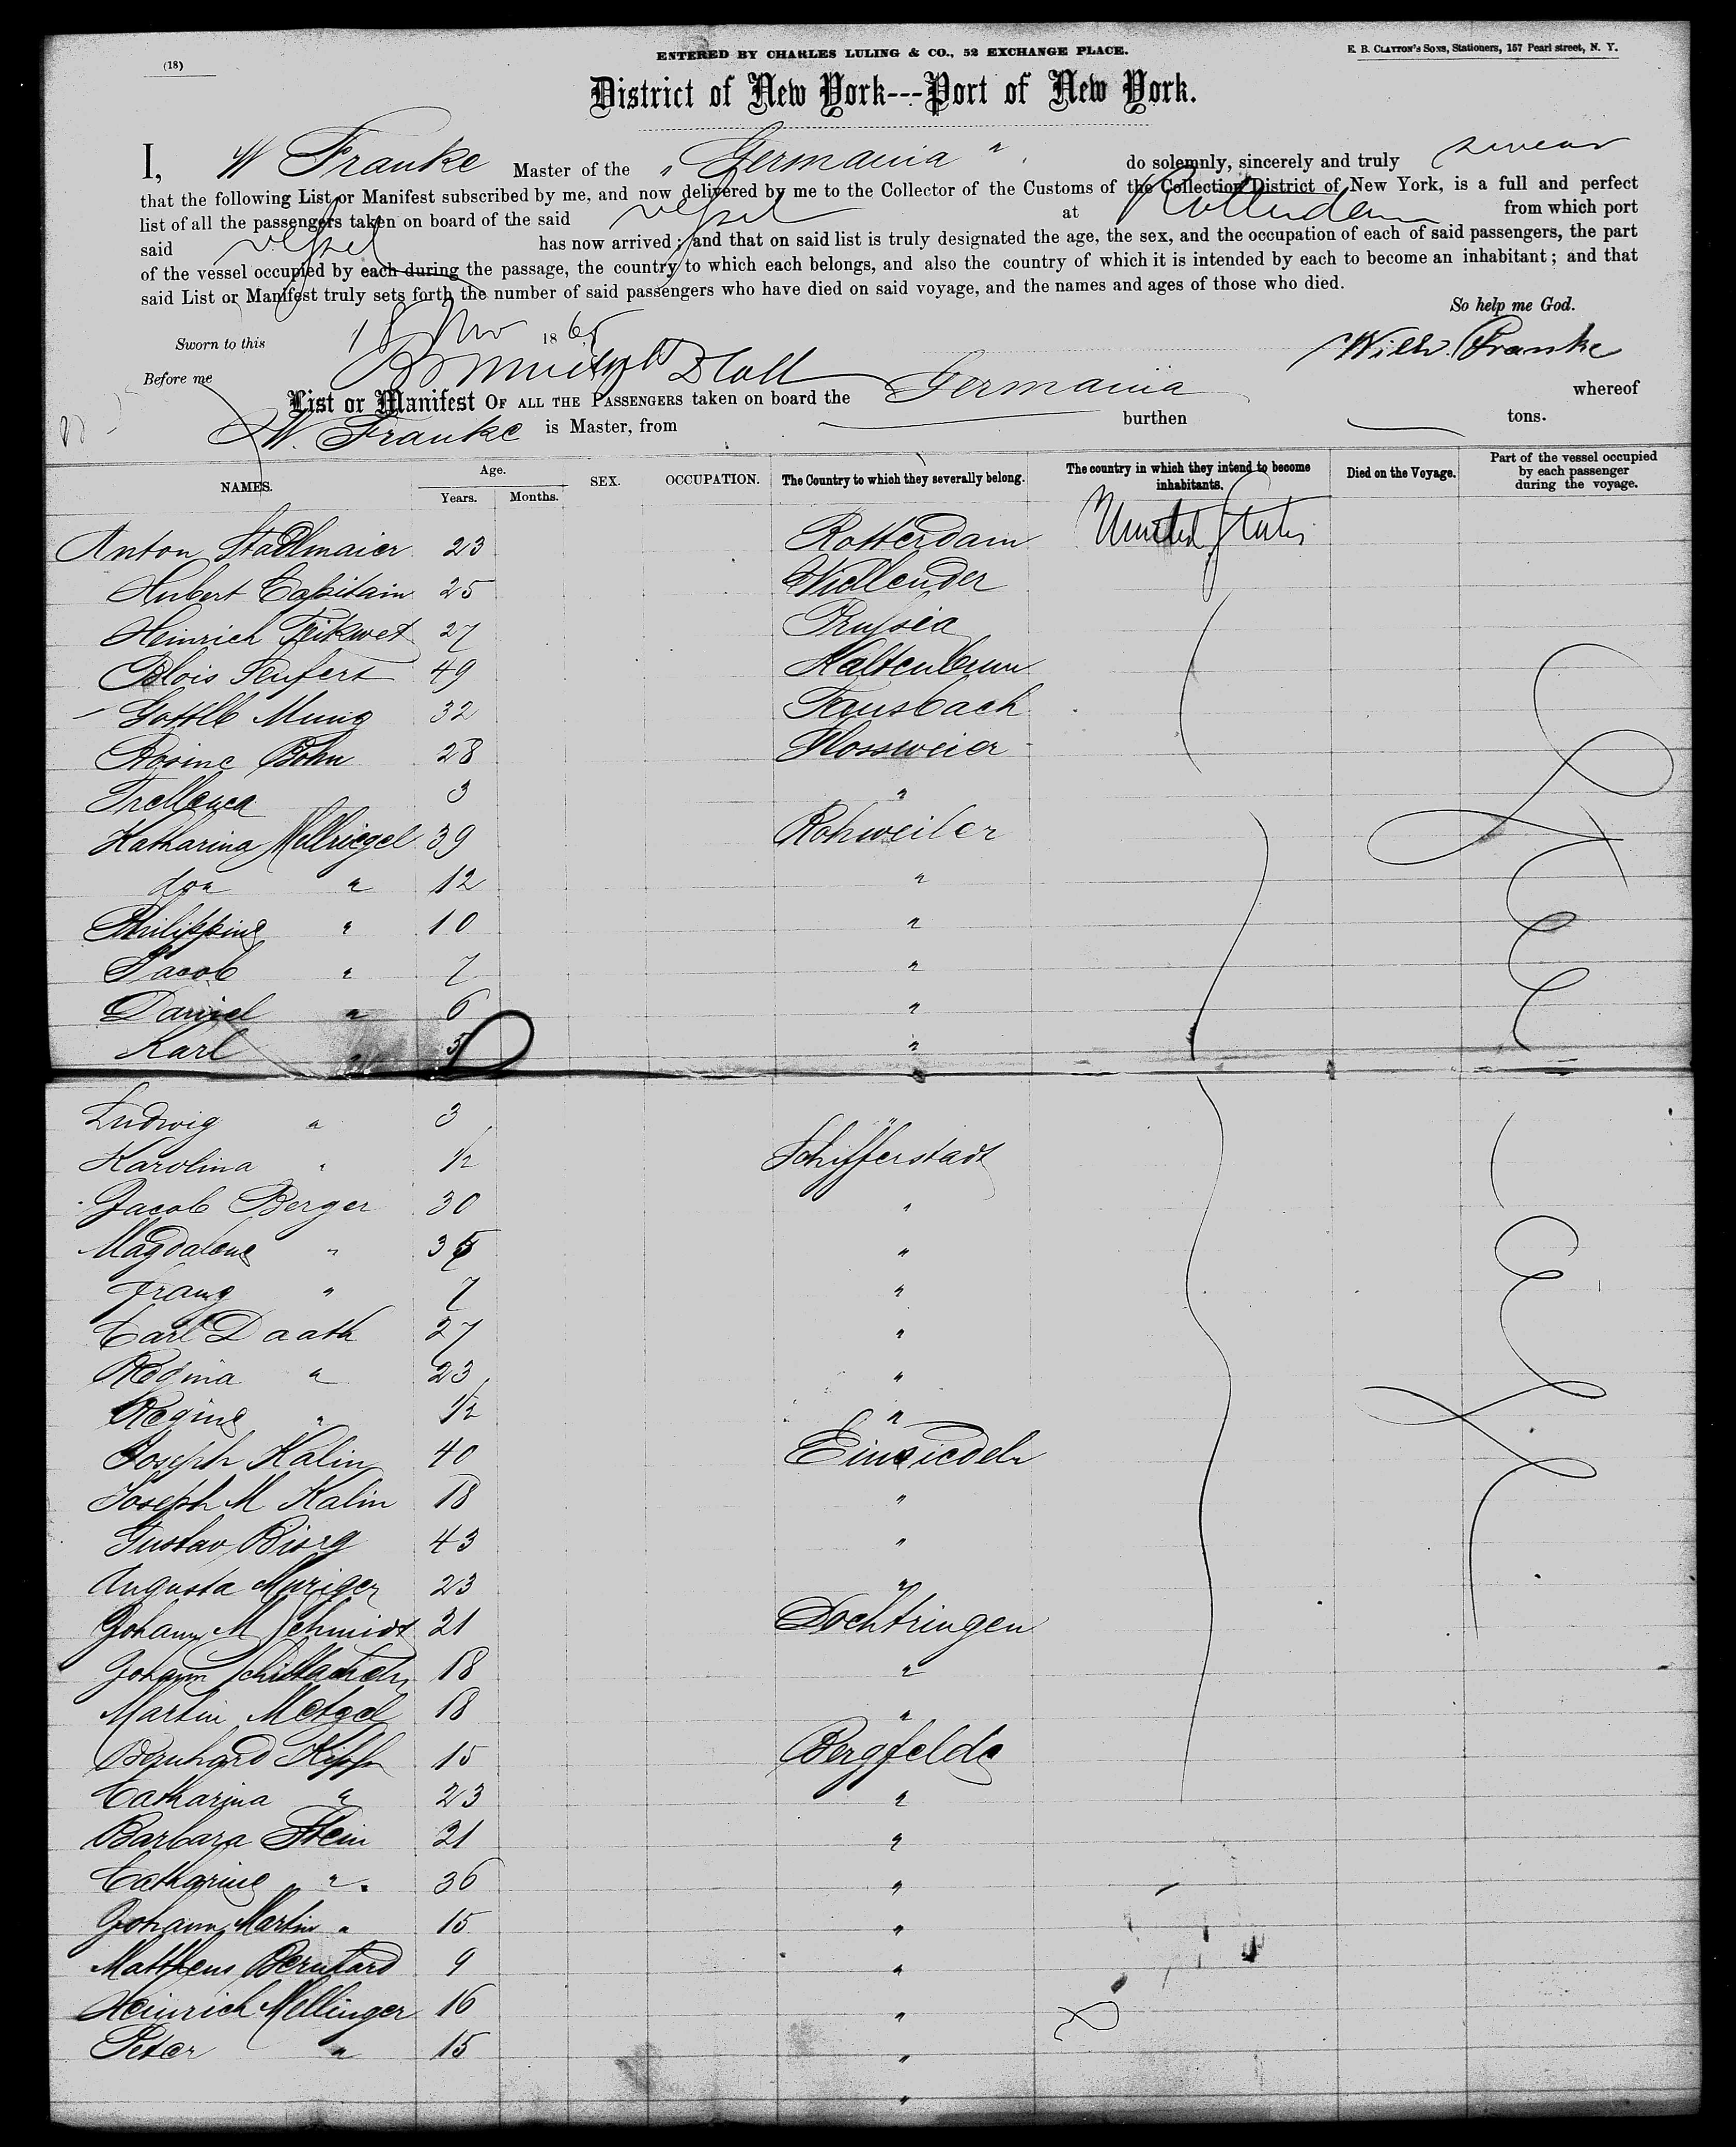 (18)
ENTERED BY CHARLES LULING & CO., 52 EXCHANGE PLACE.
E. B. CLAYTON'S SONS, Stationers, 157 Pearl street, N. Y.
District of New York---Port of New York.
I, W Franke Master of the " Germania " do solemnly, sincerely and truly swear
that the following List or Manifest subscribed by me, and now delivered by me to the Collector of the Customs of the Collection District of New York, is a full and perfect
list of all the passengers taken on board of the said vessel at Rotterdam from which port
said vessel has now arrived; and that on said list is truly designated the age, the sex, and the occupation of each of said passengers, the part
of the vessel occupied by each during the passage, the country to which each belongs, and also the country of which it is intended by each to become an inhabitant; and that
said List or Manifest truly sets forth the number of said passengers who have died on said voyage, and the names and ages of those who died.
So help me God.
Sworn to this 18 Nov 1865
Wilh. Franke
Before me
List or Manifest OF ALL THE PASSENGERS taken on board the Germania whereof
W. Franke is Master, from burthen tons.
NAMES. Age. Years. Months. SEX. OCCUPATION. The Country to which they severally belong. The country in which they intend to become inhabitants. Died on the Voyage. Part of the vessel occupied by each passenger during the voyage.
Anton Stadlmaier 23 Rotterdam United States
Hubert Capitain 25
Heinrich 27 Prussia
Alois Seufert 49 Kaltenbrun
Gottlb Munig 32 Fausbach
Rosine Bohn 28 Flossweier
3 "
Katharina Mellriegel 39 Rohweiler
do " 12 "
Philippine " 10 "
Jacob " 7 "
Daniel " 6 "
Karl " 5 "
Ludwig " 3 "
Karolina " 1/2 Schifferstadt
Jacob Berger 30 "
Magdalene " 35 "
Franz " 7 "
Carl Daath 27 "
Regina " 23 "
Regine " 1/2 "
Joseph Kalin 40 Einsiedeln
Joseph M Kalin 18 "
Gustav Bisig 43 "
Augusta 23 "
Johann M Schmidt 21 Dochtringen
Johann 18 "
Martin Metzel 18 "
Bernhard Kipp 15 Bergfelde
Catharina " 23 "
Barbara Stein 21 "
Catharine " 36 "
Johann Martin " 15 "
Mattheus Bernhard 9 "
Heinrich Mellinger 16 "
Peter " 15 "
"